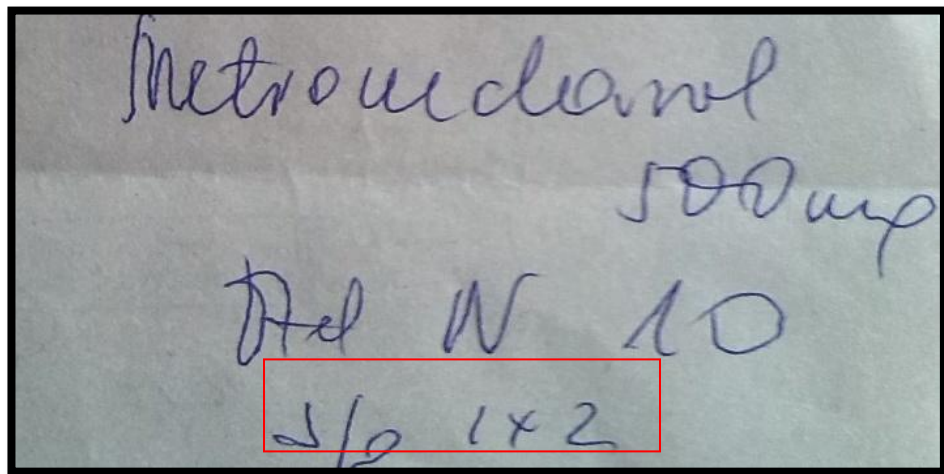 Metronidazol
500 mg
N 10
1x2